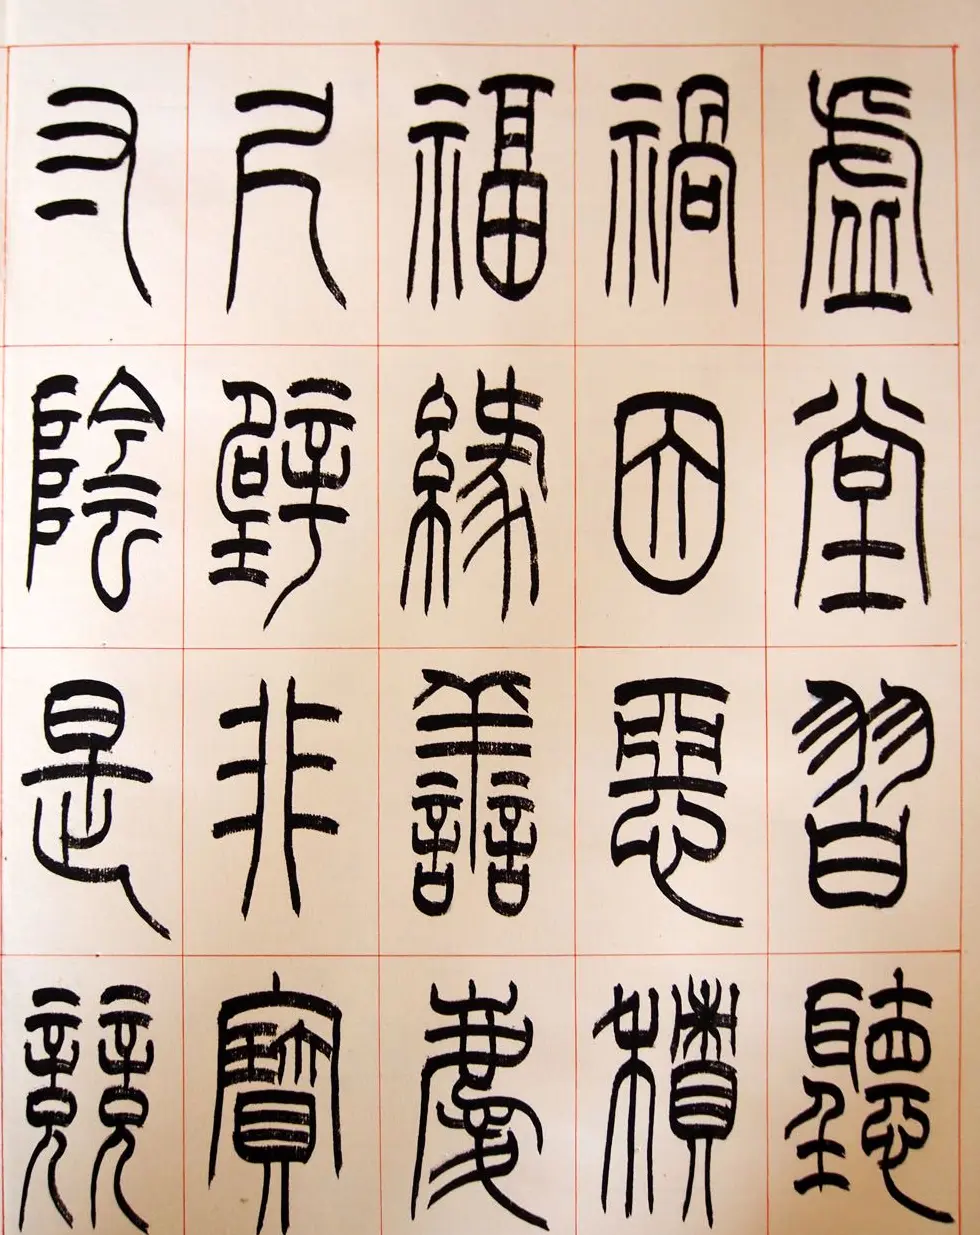 虛堂習聽
禍因惡積
福緣善慶
尺璧非寶
寸陰是競